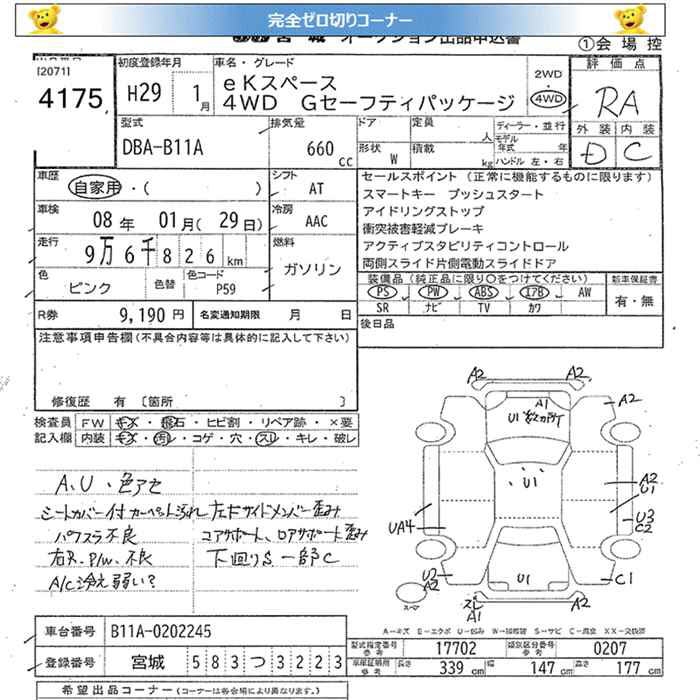 完全ゼロ切りコーナー
宮城 オークション出品申込書
①会場控
[2071]
4175
初度登録年月
H29 1月
車名・グレード
eKスペース
4WD Gセーフティパッケージ
2WD
・
4WD
評価点
RA
外装 内装
D C
型式
DBA-B11A
排気量
660 cc
ドア
形状 W
定員 人
積載 kg
ディーラー・並行
モデル年式 年
ハンドル 左・右
車歴
自家用・( )
シフト
AT
車検
08年 01月(29日)
冷房
AAC
走行
9万6千826km
燃料
ガソリン
色
ピンク
色替
色コード
P59
セールスポイント(正常に機能するものに限ります)
スマートキー プッシュスタート
アイドリングストップ
衝突被害軽減ブレーキ
アクティブスタビリティコントロール
両側スライド片側電動スライドドア
装備品(純正品に限り○をつけてください)
新車保証書
PS PW ABS エアB AW
SR ナビ TV カワ
有・無
R券 9,190円
名変通知期限 月 日
後日品
注意事項申告欄(不具合内容等は具体的に記入して下さい)
修復歴 有 〔箇所 〕
検査員記入欄
FW キズ・飛石・ヒビ割・リペア跡・×要
内装 キズ・汚レ・コゲ・穴・スリ・キレ・破レ
A、U・色アセ
シートカバー付 カーペット汚れ
パワスラ不良
右R.P/W.不良
A/C冷え弱い?
左右サイドメンバー歪み
コアサポート、ロアサポート歪み
下回りS 一部C
A2 A2
A1
A2
U1
U1
A2
U1
UA4
U3
C2
U2
A2
U1
C1
スペア
スレ
A1
A-キズ E-エクボ U-凹み W-補修跡 S-サビ C-腐食 XX-交換済
車台番号 B11A-0202245
登録番号 宮城 583つ3223
型式指定番号 参考 17702
類別区分番号 参考 0207
車庫証明用 参考 長さ 339cm 幅 147cm 高さ 177cm
希望出品コーナー(コーナーは各会場により異なります。)